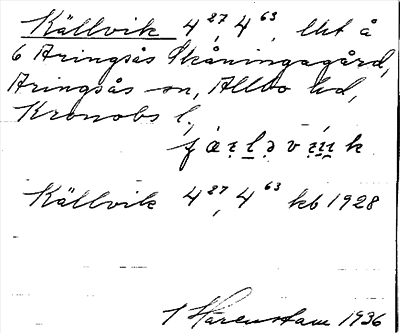 Källvik 4 27, 4 63, lht å
6 Aringsås Skåningagård,
Aringsås sn, Allbo hd,
Kronobs l,
Källvik 4 27, 4 63 kb 1928
1936